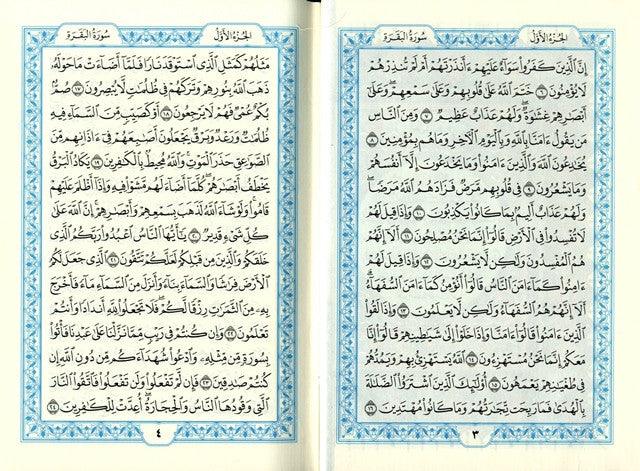 الجزء الأول
سورة البقرة
إن الذين كفروا سواء عليهم ءأنذرتهم أم لم تنذرهم
لا يؤمنون ٦ ختم الله على قلوبهم وعلى سمعهم وعلى
أبصرهم غشوة ولهم عذاب عظيم ٧ ومن الناس
من يقول ءامنا بالله وباليوم الءاخر وما هم بمؤمنين ٨
يخدعون الله والذين ءامنوا وما يخدعون إلا أنفسهم
وما يشعرون ٩ في قلوبهم مرض فزادهم الله مرضا
ولهم عذاب أليم بما كانوا يكذبون ١٠ وإذا قيل لهم
لا تفسدوا في الأرض قالوا إنما نحن مصلحون ١١ ألا إنهم
هم المفسدون ولكن لا يشعرون ١٢ وإذا قيل لهم
ءامنوا كما ءامن الناس قالوا أنؤمن كما ءامن السفهاء
ألا إنهم هم السفهاء ولكن لا يعلمون ١٣ وإذا لقوا
الذين ءامنوا قالوا ءامنا وإذا خلوا إلى شيطينهم قالوا إنا
معكم إنما نحن مستهزءون ١٤ الله يستهزئ بهم ويمدهم
في طغينهم يعمهون ١٥ أولئك الذين اشتروا الضللة
بالهدى فما ربحت تجرتهم وما كانوا مهتدين ١٦
٣
الجزء الأول
سورة البقرة
مثلهم كمثل الذي استوقد نارا فلما أضاءت ما حوله
ذهب الله بنورهم وتركهم في ظلمت لا يبصرون ١٧ صم
بكم عمي فهم لا يرجعون ١٨ أو كصيب من السماء فيه
ظلمت ورعد وبرق يجعلون أصبعهم في ءاذانهم من
الصوعق حذر الموت والله محيط بالكفرين ١٩ يكاد البرق
يخطف أبصرهم كلما أضاء لهم مشوا فيه وإذا أظلم عليهم
قاموا ولو شاء الله لذهب بسمعهم وأبصرهم إن الله على
كل شيء قدير ٢٠ يأيها الناس اعبدوا ربكم الذي
خلقكم والذين من قبلكم لعلكم تتقون ٢١ الذي جعل لكم
الأرض فرشا والسماء بناء وأنزل من السماء ماء فأخرج
به من الثمرت رزقا لكم فلا تجعلوا لله أندادا وأنتم
تعلمون ٢٢ وإن كنتم في ريب مما نزلنا على عبدنا فأتوا
بسورة من مثله وادعوا شهداءكم من دون الله إن
كنتم صدقين ٢٣ فإن لم تفعلوا ولن تفعلوا فاتقوا النار
التي وقودها الناس والحجارة أعدت للكفرين ٢٤
٤